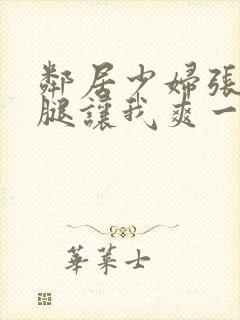 鄰居少婦張
腿讓我爽一
華萊士